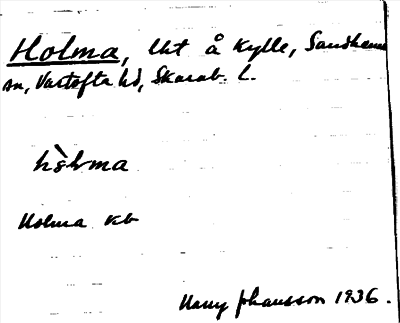 Holma, lht å Kylle, Sandhem
sn, Vartofta hd, Skarab. l.
hòlma
Holma kb
Harry Jhansson 1936.